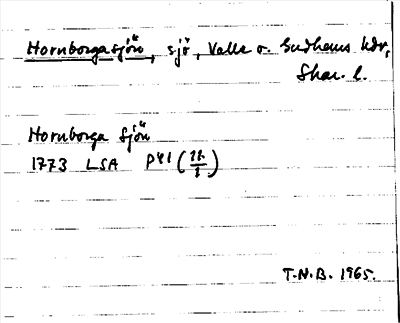 Hornborgasjön, sjö, Valle o. Gudhems hdr,
Skar. l.
Hornborga Sjön
1773 LSA P41 (22/1)
T.N.B. 1965.